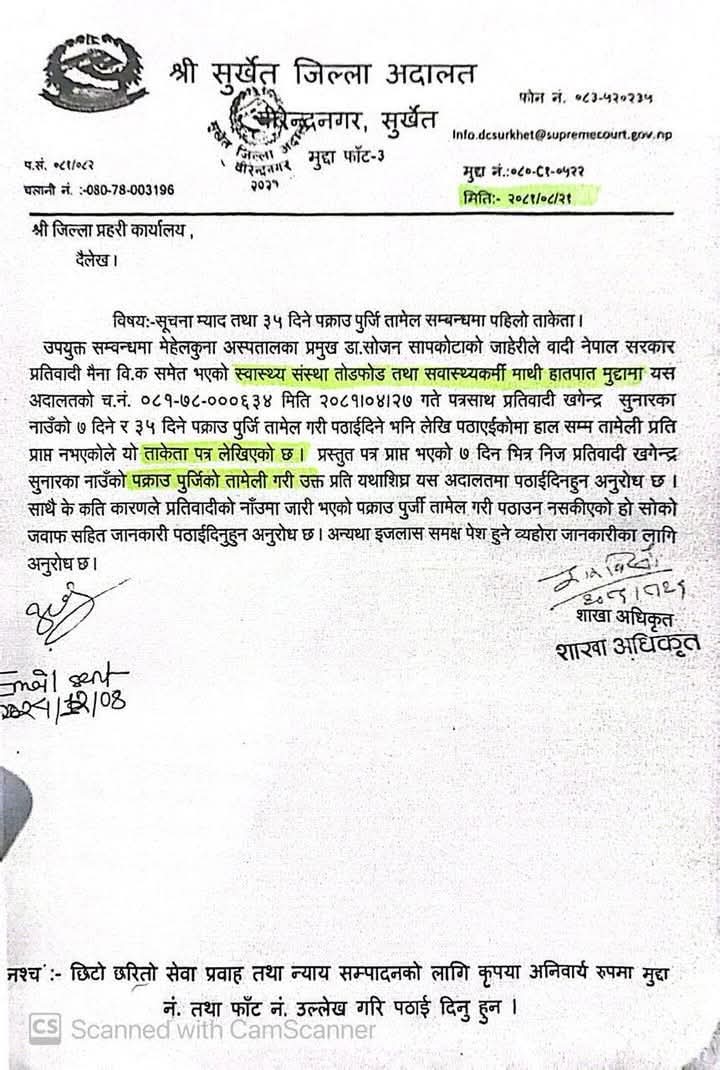 श्री सुर्खेत जिल्ला अदालत
फोन नं. ०८३-५२०२३५
वीरेन्द्रनगर, सुर्खेत
Info.dcsurkhet@supremecourt.gov.np
सुर्खेत जिल्ला अदालत
वीरेन्द्रनगर
२०२१
मुद्दा फाँट-३
प.सं. ०८१/०८२
मुद्दा नं.:०८०-C१-०५२२
चलानी नं. :-080-78-003196
मितिः- २०८१/०८/२१
श्री जिल्ला प्रहरी कार्यालय ,
दैलेख ।
विषयः-सूचना म्याद तथा ३५ दिने पक्राउ पुर्जि तामेल सम्बन्धमा पहिलो ताकेता ।
उपयुक्त सम्वन्धमा मेहेलकुना अस्पतालका प्रमुख डा.सोजन सापकोटाको जाहेरीले वादी नेपाल सरकार
प्रतिवादी मैना वि.क समेत भएको स्वास्थ्य संस्था तोडफोड तथा सवास्थ्यकर्मी माथी हातपात मुद्दामा यस
अदालतको च.नं. ०८१-७८-०००६३४ मिति २०८१।०४।२७ गते पत्रसाथ प्रतिवादी खगेन्द्र सुनारका
नाउँको ७ दिने र ३५ दिने पक्राउ पुर्जि तामेल गरी पठाईदिने भनि लेखि पठाएईकोमा हाल सम्म तामेली प्रति
प्राप्त नभएकोले यो ताकेता पत्र लेखिएको छ । प्रस्तुत पत्र प्राप्त भएको ७ दिन भित्र निज प्रतिवादी खगेन्द्र
सुनारका नाउँको पक्राउ पुर्जिको तामेली गरी उक्त प्रति यथाशिघ्र यस अदालतमा पठाईदिनहुन अनुरोध छ ।
साथै के कति कारणले प्रतिवादीको नाँउमा जारी भएको पक्राउ पुर्जी तामेल गरी पठाउन नसकीएको हो सोको
जवाफ सहित जानकारी पठाईदिनुहुन अनुरोध छ । अन्यथा इजलास समक्ष पेश हुने व्यहोरा जानकारीका लागि
अनुरोध छ ।
शाखा अधिकृत
शाखा अधिकृत
Email sent
नश्च :- छिटो छरितो सेवा प्रवाह तथा न्याय सम्पादनको लागि कृपया अनिवार्य रुपमा मुद्दा
नं. तथा फाँट नं. उल्लेख गरि पठाई दिनु हुन ।
CS Scanned with CamScanner